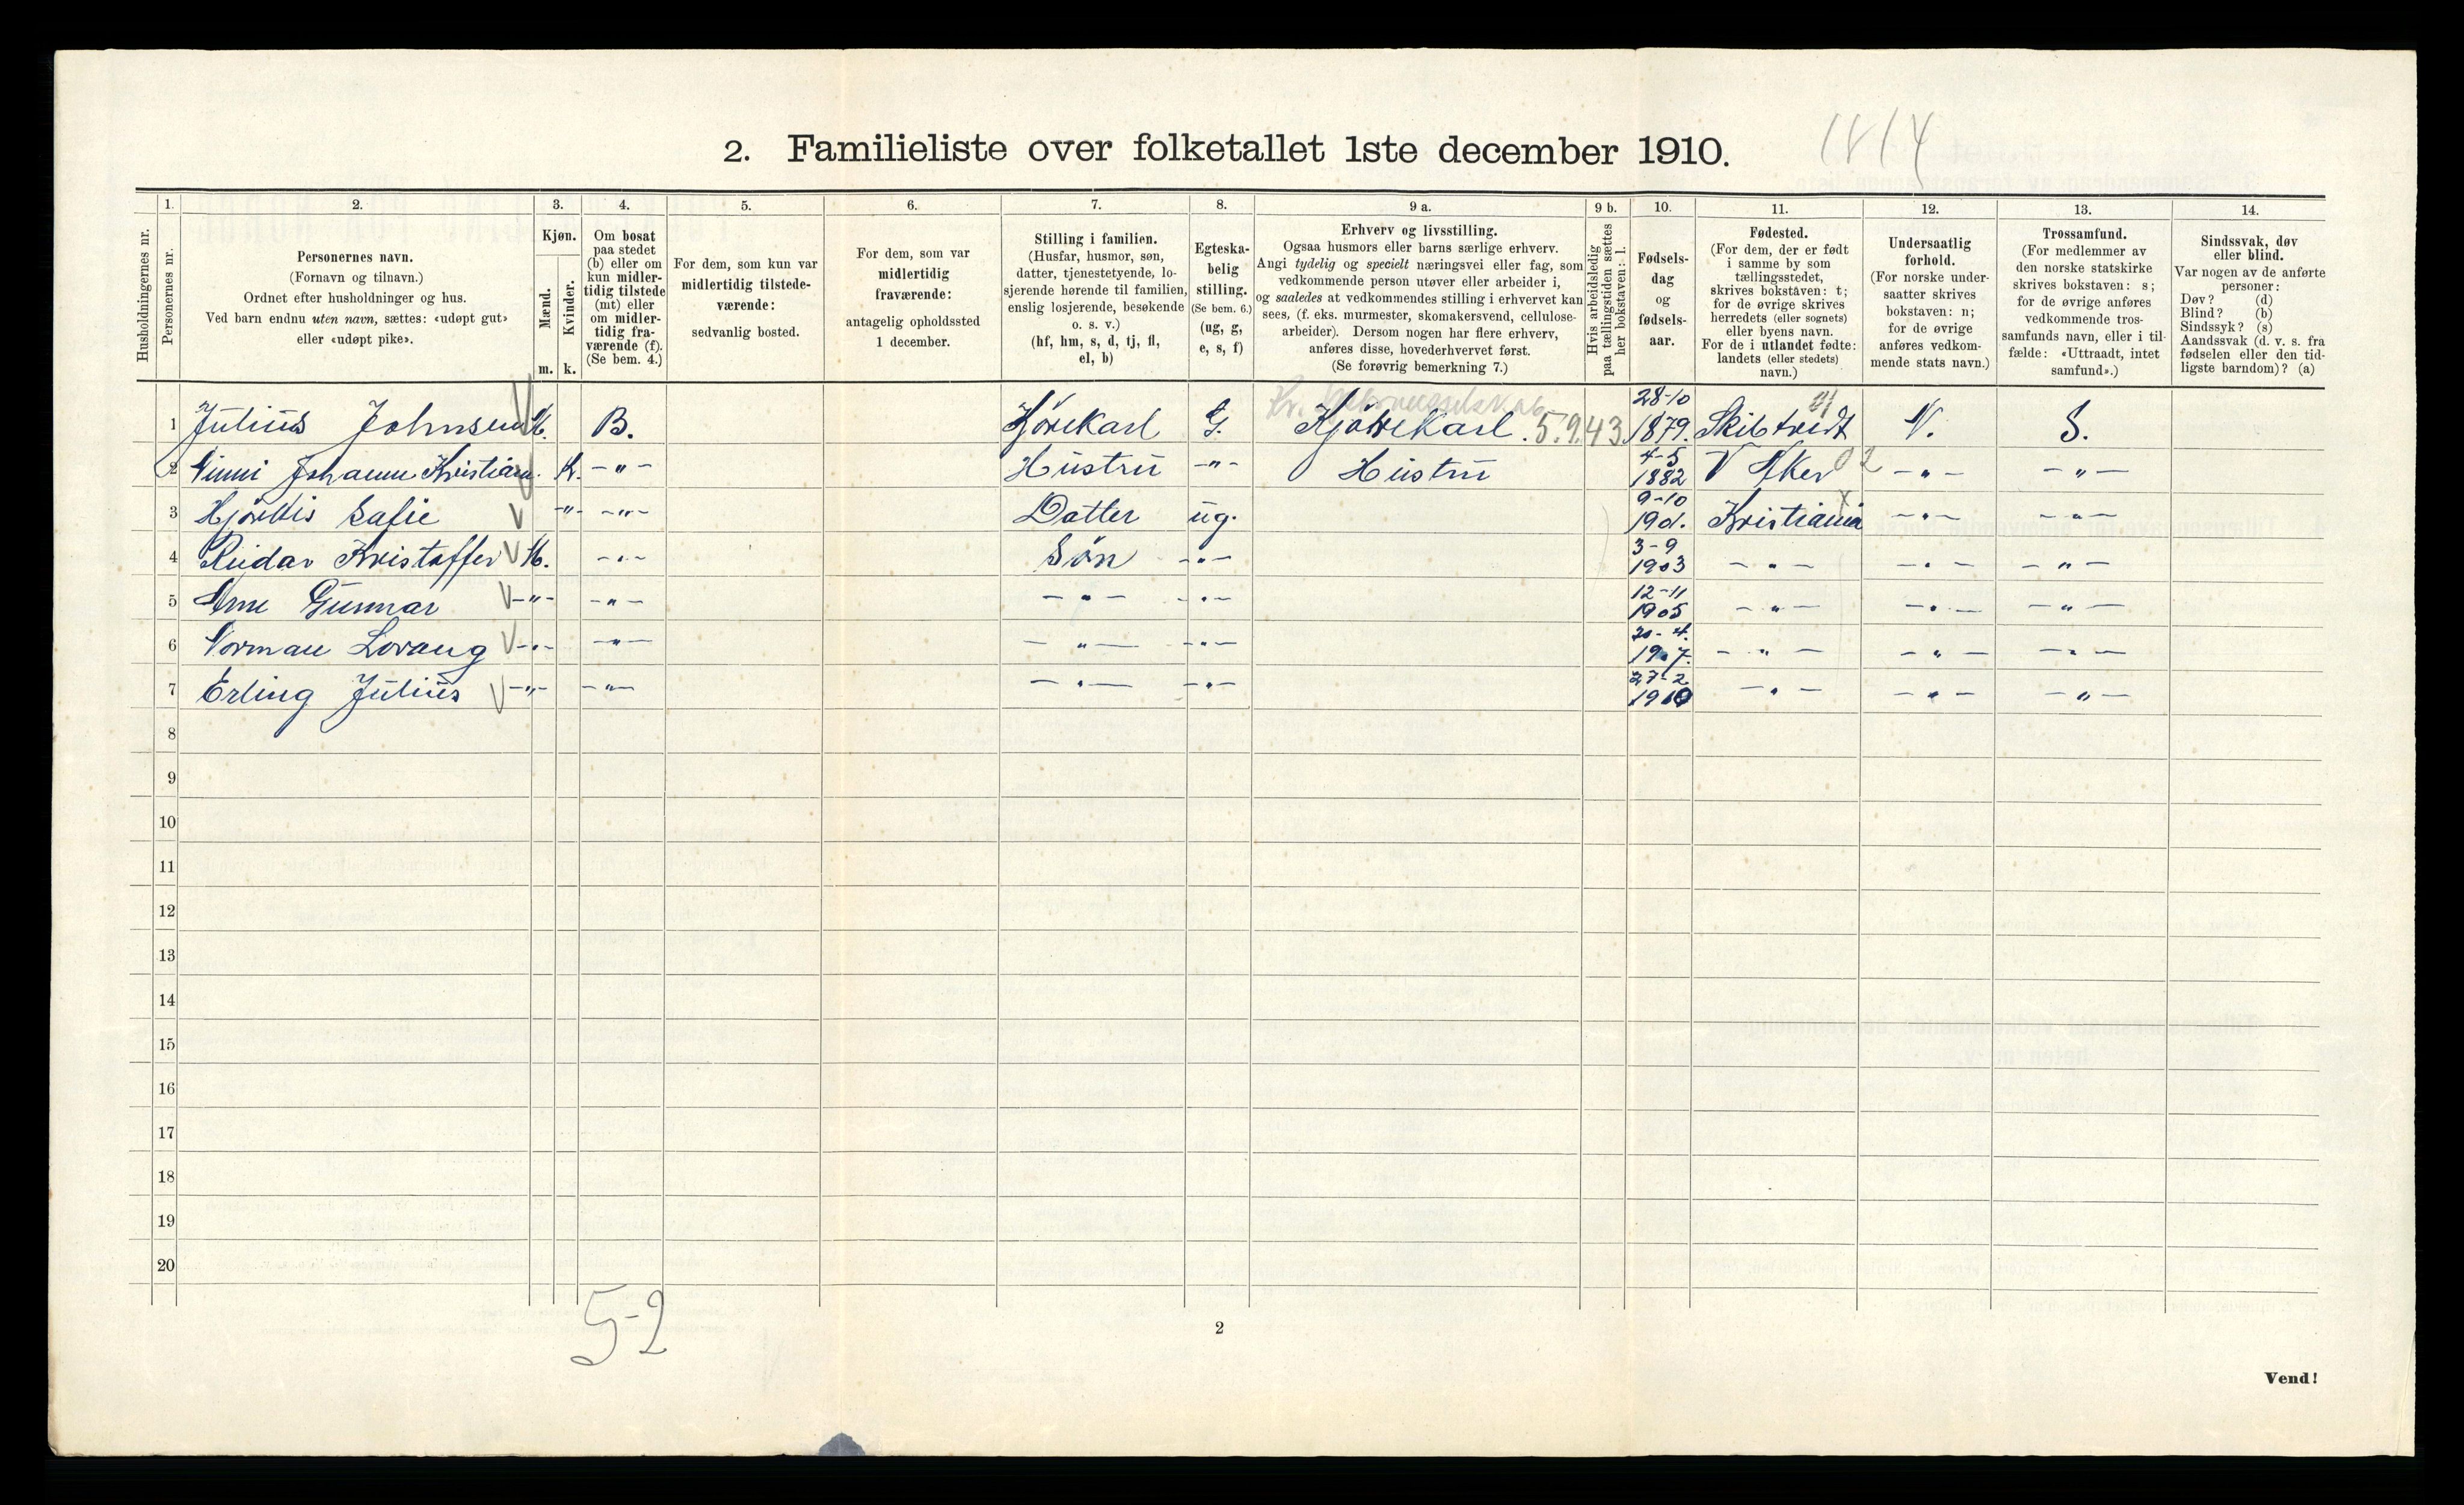 2. Familieliste over folketallet 1ste december 1910.
1814
Husholdningernes nr.
1.
Personernes nr.
2.
Personernes navn.
(Fornavn og tilnavn.)
Ordnet efter husholdninger og hus.
Ved barn endnu uten navn, sættes: «udøpt gut»
eller «udøpt pike».
3.
Kjøn.
Mænd.
Kvinder.
m. k.
4.
Om bosat
paa stedet
(b) eller om
kun midler-
tidig tilstede
(mt) eller
om midler-
tidig fra-
værende (f).
(Se bem. 4.)
5.
For dem, som kun var
midlertidig tilstede-
værende:
sedvanlig bosted.
6.
For dem, som var
midlertidig
fraværende:
antagelig opholdssted
1 december.
7.
Stilling i familien.
(Husfar, husmor, søn,
datter, tjenestetyende, lo-
sjerende hørende til familien,
enslig losjerende, besøkende
o. s. v.)
(hf, hm, s, d, tj, fl,
el, b)
8.
Egteska-
belig
stilling.
(Se bem. 6.)
(ug, g,
e, s, f)
9 a.
Erhverv og livsstilling.
Ogsaa husmors eller barns særlige erhverv.
Angi tydelig og specielt næringsvei eller fag, som
vedkommende person utøver eller arbeider i,
og saaledes at vedkommendes stilling i erhvervet kan
sees, (f. eks. murmester, skomakersvend, cellulose-
arbeider). Dersom nogen har flere erhverv,
anføres disse, hovederhvervet først.
(Se forøvrig bemerkning 7.)
9 b.
Hvis arbeidsledig
paa tællingstiden sættes
her bokstaven: l.
10.
Fødsels-
dag
og
fødsels-
aar.
11.
Fødested.
(For dem, der er født
i samme by som
tællingsstedet,
skrives bokstaven: t;
for de øvrige skrives
herredets (eller sognets)
eller byens navn.
For de i utlandet fødte:
landets (eller stedets)
navn.)
12.
Undersaatlig
forhold.
(For norske under-
saatter skrives
bokstaven: n;
for de øvrige
anføres vedkom-
mende stats navn.)
13.
Trossamfund.
(For medlemmer av
den norske statskirke
skrives bokstaven: s;
for de øvrige anføres
vedkommende tros-
samfunds navn, eller i til-
fælde: «Uttraadt, intet
samfund».)
14.
Sindssvak, døv
eller blind.
Var nogen av de anførte
personer:
Døv? (d)
Blind? (b)
Sindssyk? (s)
Aandssvak (d. v. s. fra
fødselen eller den tid-
ligste barndom)? (a)
1 Julius Johnsen M. B. Kjørekarl G. Kjørekarl. 5.9.43 28-10 1879. Skibtvedt N. S.
2 Ninni Johanne Kristiane. K. -"- Hustru -"- Hustru 4-5 1882 V Aker 02 -"- -"-
3 Hjørdis Safie -"- -"- Datter ug. 9-10 1901. Kristiania -"- -"-
4 Reidar Kristoffer M. -"- Søn -"- 3-9 1903 -"- -"- -"-
5 Arne Gunnar -"- -"- -"- -"- 12-11 1905 -"- -"- -"-
6 Norman Lorang -"- -"- -"- -"- 20-4. 1907. -"- -"- -"-
7 Erling Julius -"- -"- -"- -"- 27-2 1910 -"- -"- -"-
8
9
10
11
12
13
14
15
16
17
18
19
20
5-2
2
Vend!